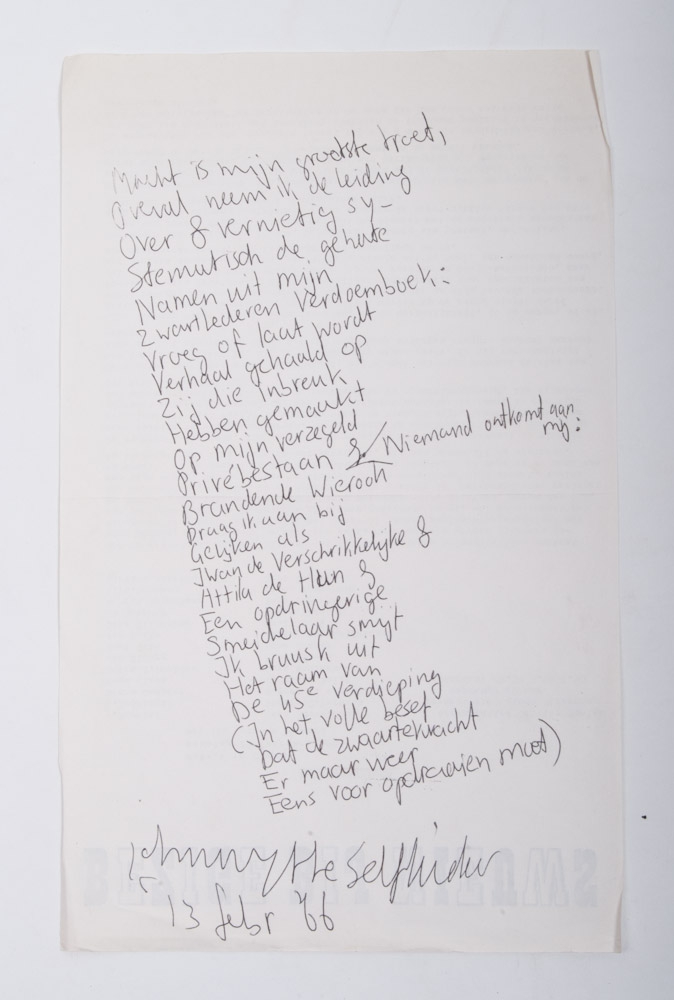 Macht is mijn grootste troef,
Overal neem ik de leiding
Over & vernietig sy-
Stematisch de gehate
Namen uit mijn
Zwartlederen Verdoemboek:
Vroeg of laat wordt
Verhaal gehaald op
Zij die Inbreuk
Hebben gemaakt
Op mijn verzegeld
Privébestaan & / Niemand ontkomt aan
mij:
Brandende Wierook
Draag ik aan bij
Gelijken als
Iwan de Verschrikkelijke &
Attila de Hun &
Een opdringerige
Smeichelaar smijt
Ik bruusk uit
Het raam van
De 45e verdieping
(In het volle besef
Dat de zwaartekracht
Er maar weer
Eens voor opdraaien moet)
Johnny the Selfkicker
13 febr '66